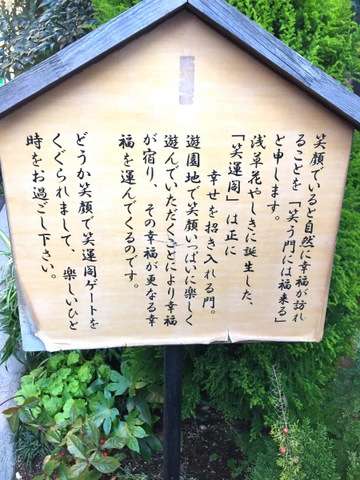 笑顔でいると自然に幸福が訪れ
ることを「笑う門には福来る」
と申します。
浅草花やしきに誕生した、
「笑運閣」は正に
幸せを招き入れる門。
遊園地で笑顔いっぱいに楽しく
遊んでいただくことにより幸福
が宿り、その幸福が更なる幸
福を運んでくるのです。
どうか笑顔で笑運閣ゲートを
くぐられまして、楽しいひと
時をお過ごし下さい。